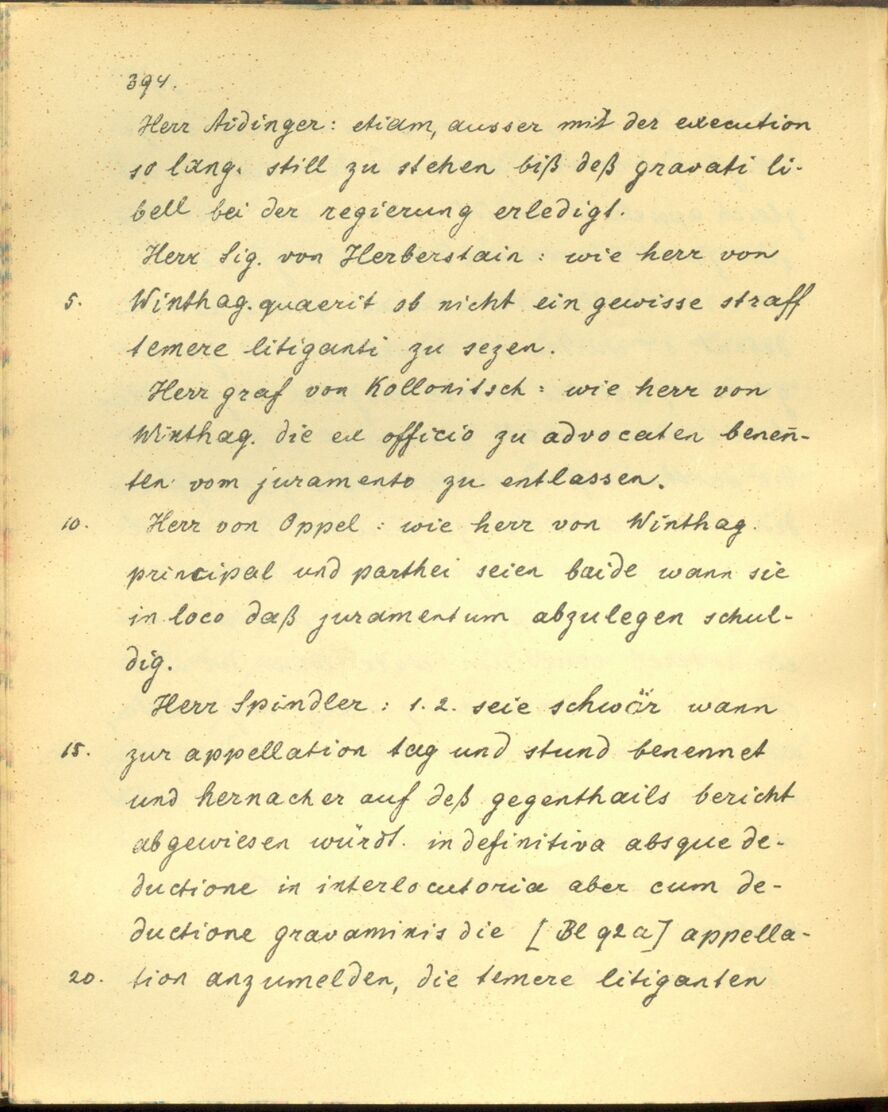 394.
Herr Aidinger: etiam, ausser mit der execution
so lang. still zu stehen biß deß gravati li-
bell bei der regierung erledigt.
Herr Sig. von Herberstain: wie herr von
5. Winthag. quaerit ob nicht ein gewisse straff
temere litiganti zu sezen.
Herr graf von Kollonitsch: wie herr von
Winthag. die ex officio zu advocaten beneñ-
ten vom juramento zu entlassen.
10. Herr von Oppel: wie herr von Winthag.
principal und parthei seien baide wann sie
in loco daß juramentum abzulegen schul-
dig.
Herr Spindler: 1. 2. seie schwär wann
15. zur appellation tag und stund benennet
und hernacher auf deß gegenthails bericht
abgewiesen würdt. in definitiva absque de-
ductione in interlocutoria aber cum de-
ductione gravaminis die [Bl 92a] appella-
20. tion anzumelden, die temere litiganten